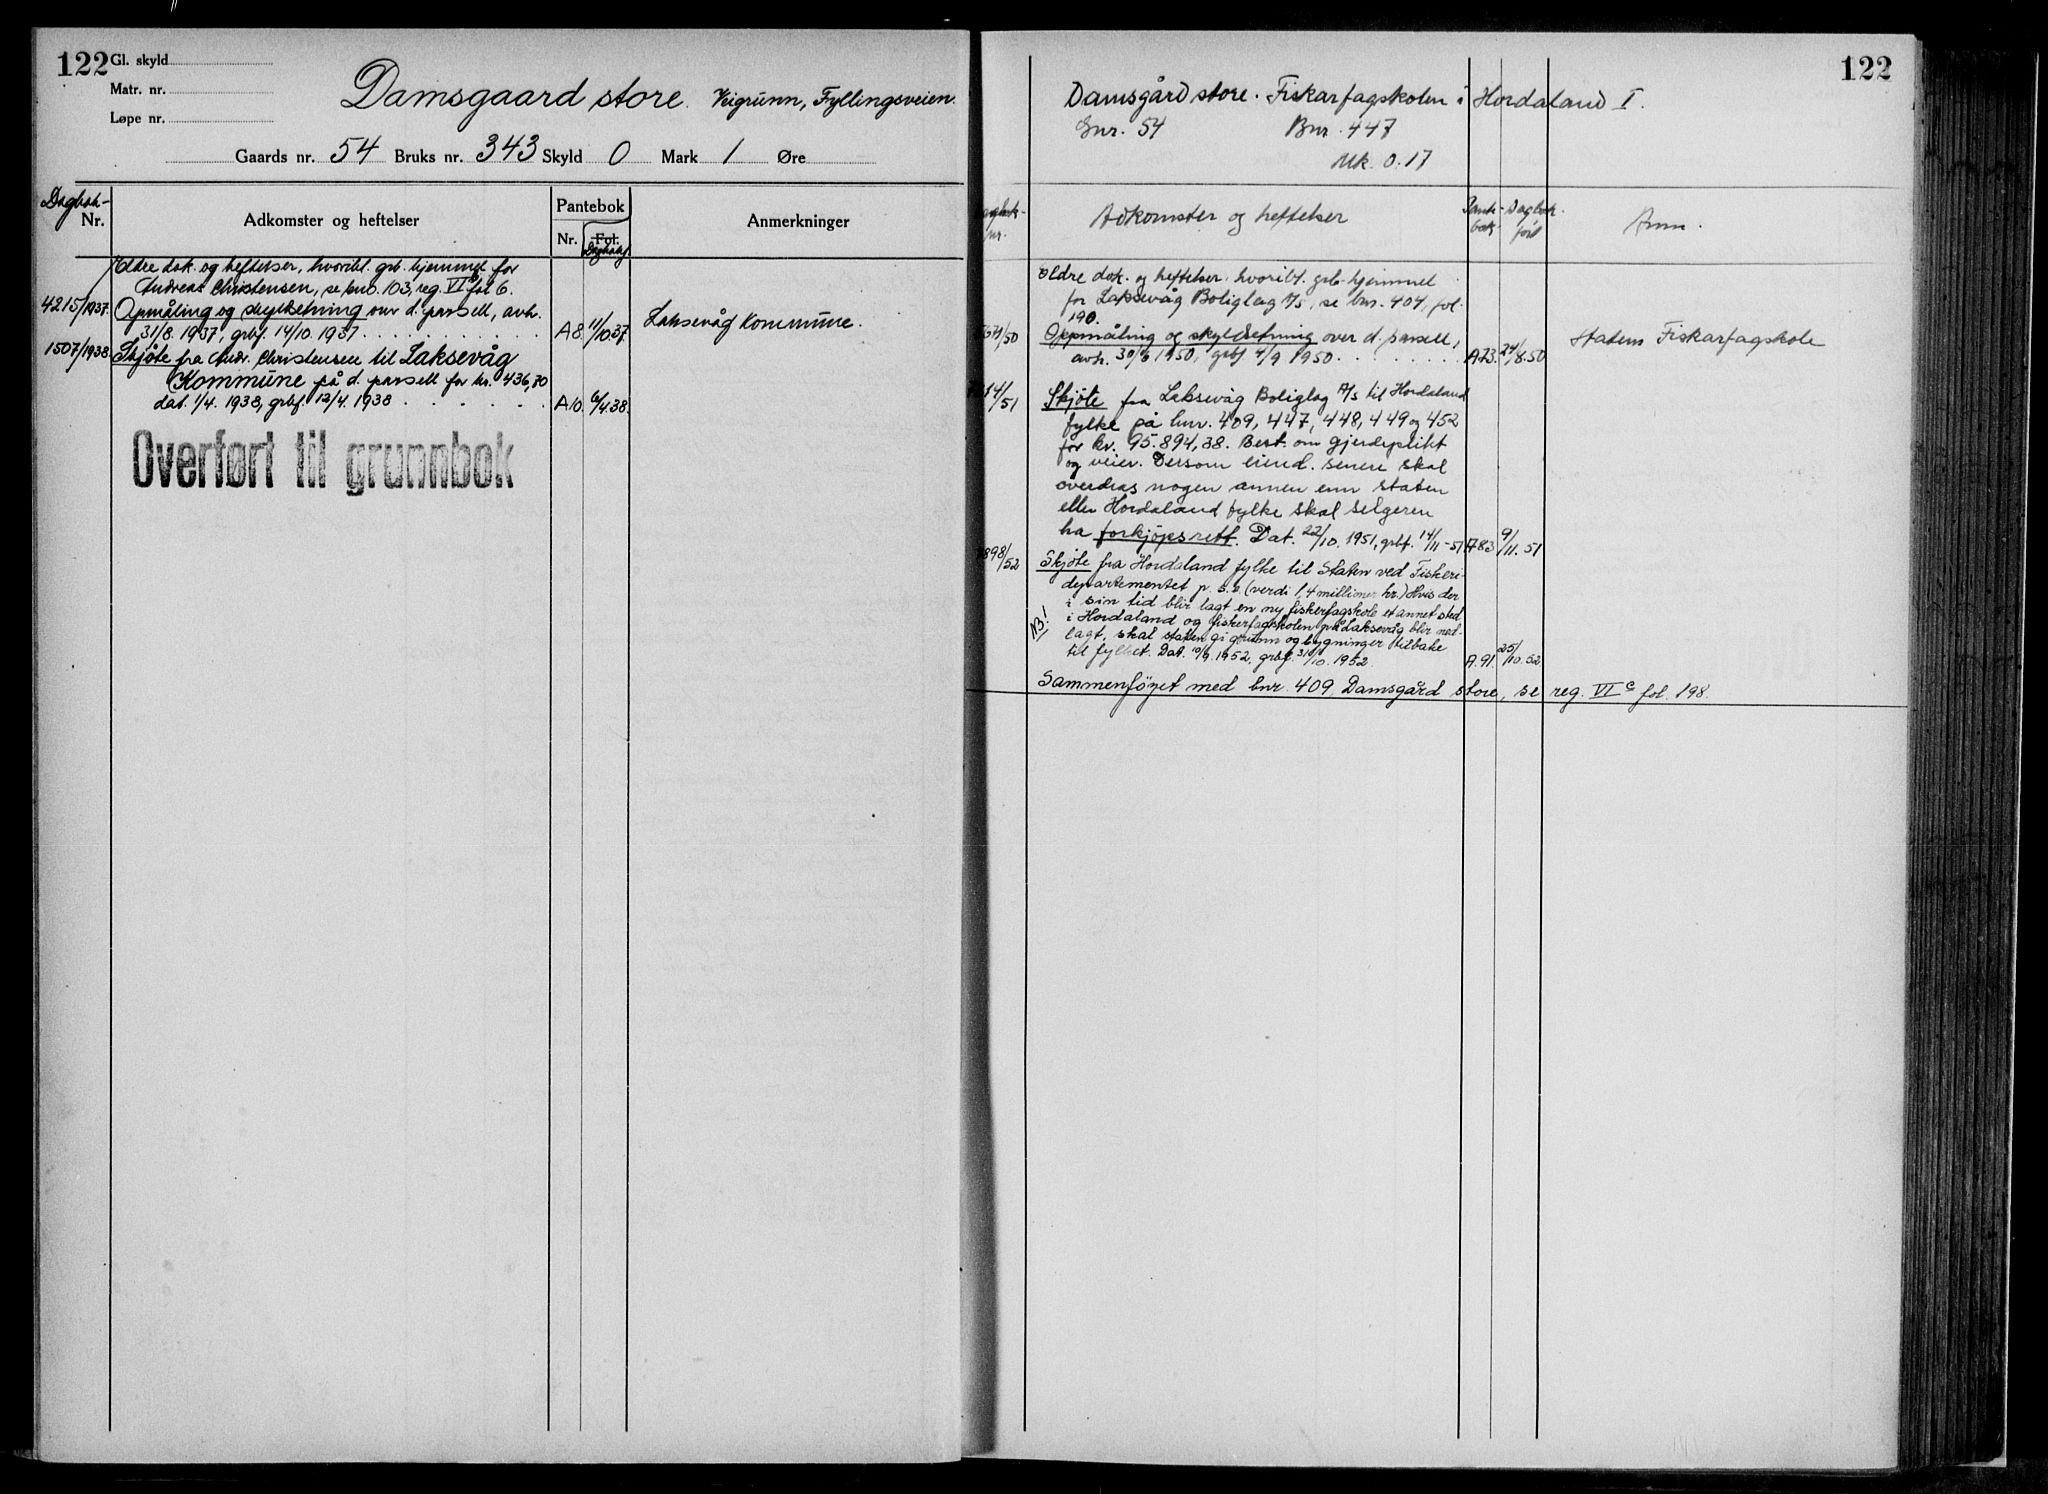 122
Gl. skyld
Matr. nr.
Løpe nr.
Damsgaard store. Veigrunn, Fyllingsveien.
Gaards nr. 54 Bruks nr. 343 Skyld 0 Mark 1 Øre
Dagbok-
Nr.
Adkomster og heftelser
Pantebok
Nr.
Fol.
Dagbokf.
Anmerkninger
Eldre dok. og heftelser, hvoribl. grb. hjemmel for
Andreas Christensen, se bno. 103, reg. VI fol 6.
4215/1937. Opmåling og skyldsetning over d. parsell, avh.
31/8 1937, grbf. 14/10. 1937 A8 11/10 37. Laksevåg Kommune.
1507/1938. Skjöte fra Andr. Christensen til Laksevåg
Kommune på d. parsell for kr. 436,70
dat. 1/4. 1938, grbf. 12/4. 1938 A10. 6/4.38.
Overført til grunnbok
122
Damsgård store. Fiskarfagskolen i Hordaland I.
Gnr. 54 Bnr. 447
Mk. 0.17
nr.
Adkomster og heftelser
Pante-
bok
Dagbok.
ført
Anm.
Eldre dok. og heftelser hvoribl. grb. hjemmel
for Laksevåg Boliglag A/S, se bnr. 404, fol.
190.
/50 Oppmåling og skyldsetning over d. parsell,
avh. 30/6 1950, grbf 4/9 1950 A73. 24/8.50 Statens Fiskarfagskole
14/51 Skjöte fra Laksevåg Boliglag A/S til Hordaland
fylke på bnr. 409, 447, 448, 449 og 452
for kr. 95.894,38. Best. om gjerdeplikt
og veier. Dersom eiend. senere skal
overdras nogen annen enn staten
eller Hordaland fylke skal selgeren
ha forkjöpsrett. Dat. 22/10. 1951, grbf. 14/11-51 A83 9/11.51
898/52 Skjöte fra Hordaland fylke til Staten ved Fiskeri-
departementet p. s.e. (verdi 1,4 millioner kr.) Hvis der
i sin tid blir lagt en ny fiskerfagskole et annet sted
NB! i Hordaland og fiskerfagskolen på Laksevåg blir ned-
lagt, skal staten gi grunn og bygninger tilbake
til fylket. Dat. 10/9.1952, grbf. 31/10. 1952. A.91. 25/10.52
Sammenföyet med bnr. 409, Damsgård store, se reg. VI c fol. 198.